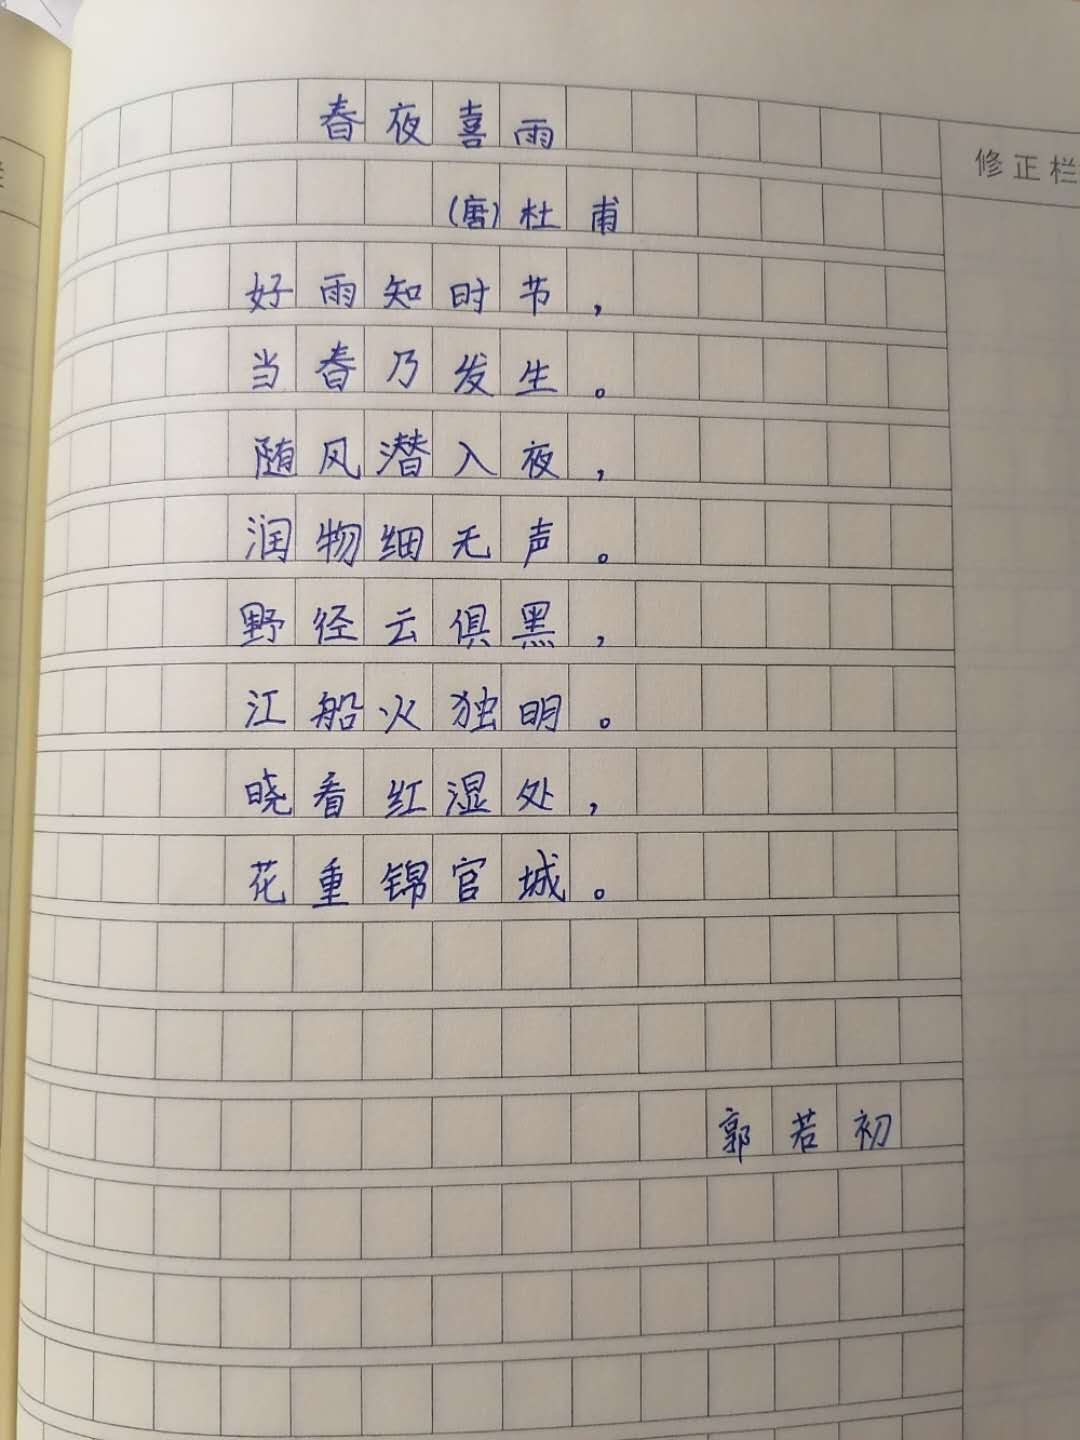 春夜喜雨
修正栏
(唐)杜甫
好雨知时节，
当春乃发生。
随风潜入夜，
润物细无声。
野径云俱黑，
江船火独明。
晓看红湿处，
花重锦官城。
郭若初